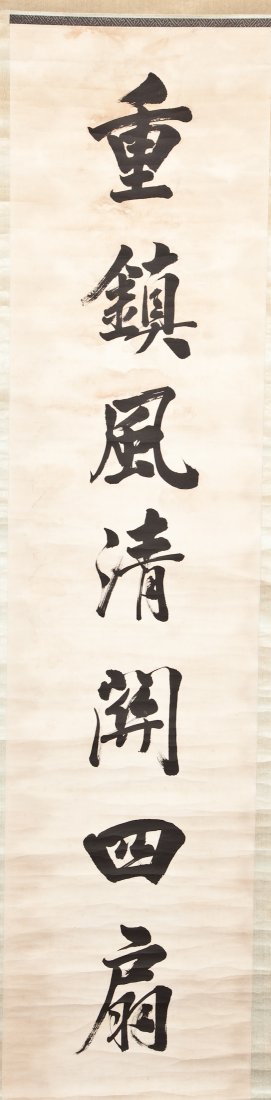 重鎮風清開四扇